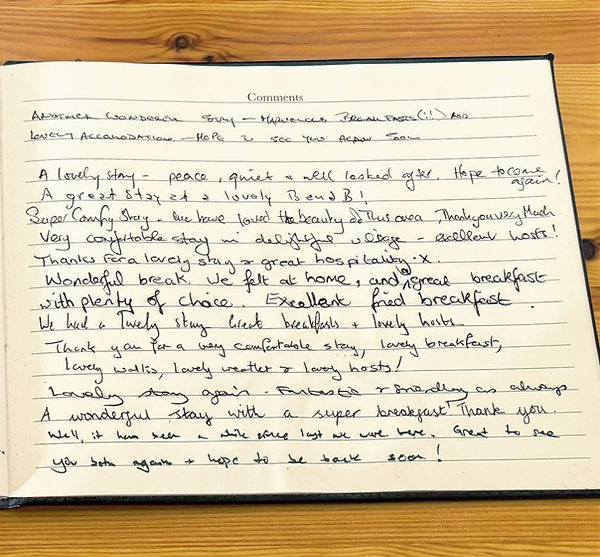 Comments
ANOTHER WONDERFUL STAY – MARVELLOUS BREAKFASTS(!!) AND
LOVELY ACCOMODATION. – HOPE TO SEE YOU AGAIN SOON
A lovely stay – peace, quiet & well looked after. Hope to come
again!
A great stay at a lovely B and B!
Super Comfy Stay – We have loved the beauty of this area Thankyou very Much
Very comfortable stay in delightful village – excellent hosts!
Thanks for a lovely stay & great hospitality. X.
Wonderful break. We felt at home, and a great breakfast
with plenty of choice. Excellent fried breakfast.
We had a lovely stay Great breakfasts + lovely hosts
Thank you for a very comfortable stay, lovely breakfast,
lovely walks, lovely weather & lovely hosts!
Lovely stay again. Fantastic & friendly as always
A wonderful stay with a super breakfast! Thank you.
Well, it has been a while since last we were here. Great to see
you both again + hope to be back soon!